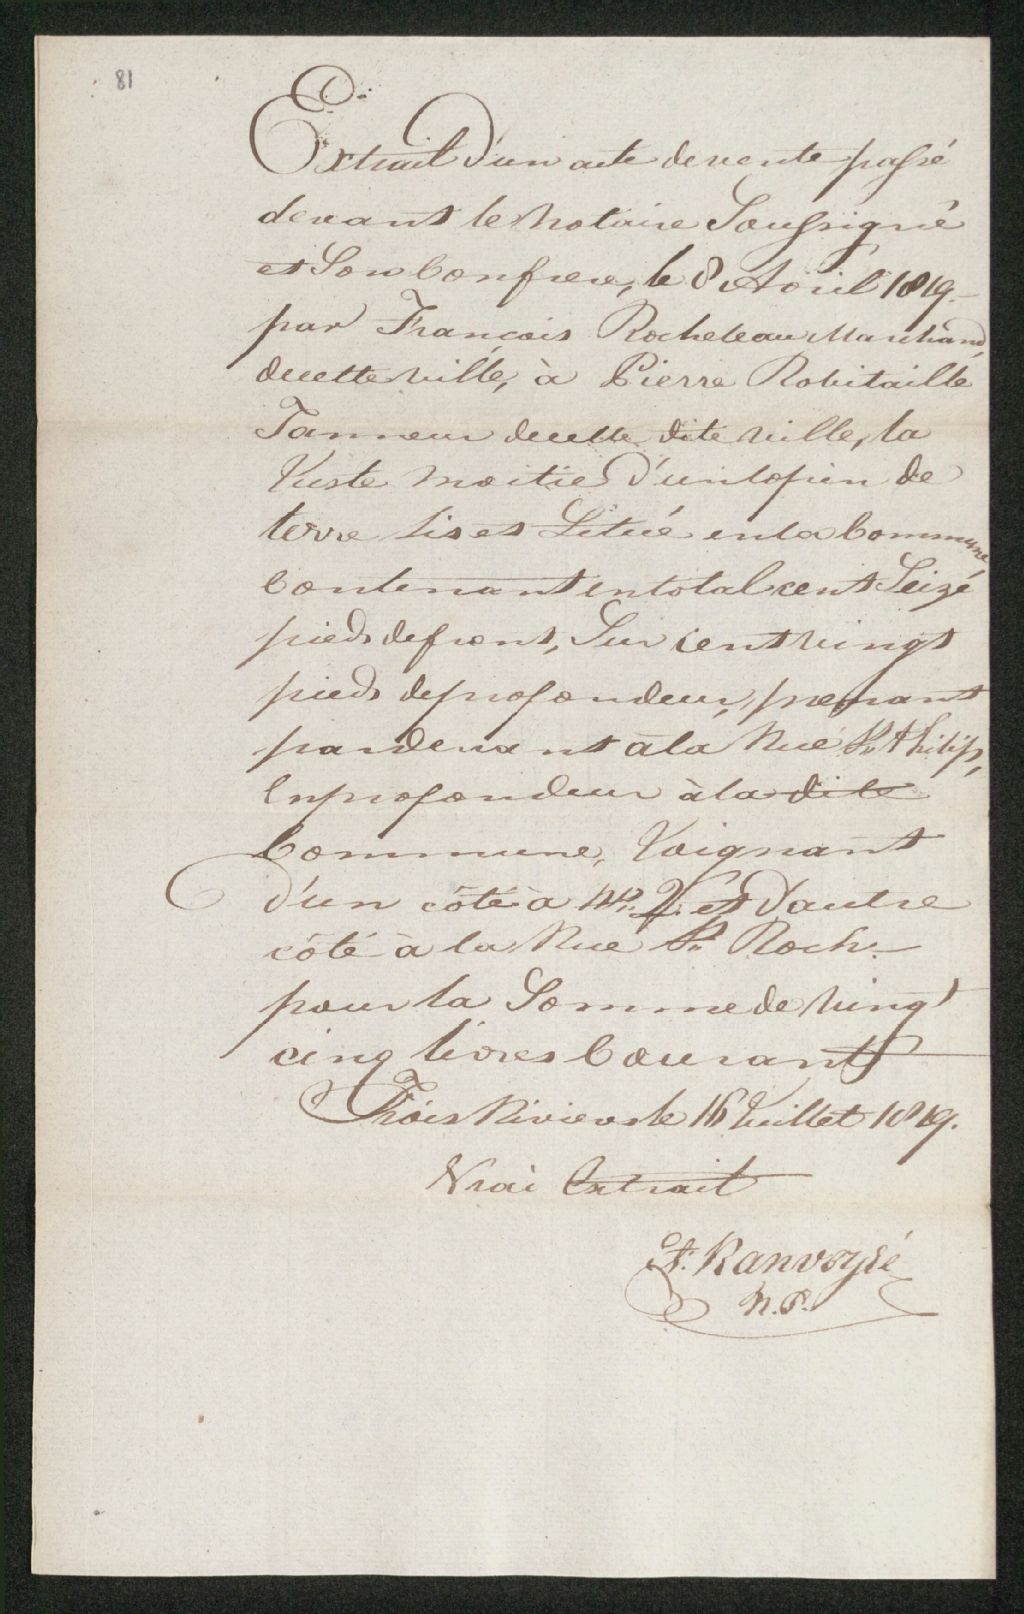 81
Extrait d'un acte de vente passé
devant le Notaire Soussigné
et Son Confrere, le 8 Avril 1819.
par François Rocheleau Marchand,
de cette ville, à Pierre Robitaille
Tanneur de cette dite ville, la
Juste moitié d'un lopin de
terre sis et Situé en la Commune,
Contenant en total cent Seize
pieds de front, Sur cent vingt
pieds de profondeur, prenant
par devant à la Rue St. Philip,
En profondeur à la dite
Commune, Joignant
d'un côté à et d'autre
côté à la Rue St. Roch.
pour la Somme de vingt
cinq livres Courant
Trois Rivieres le 16 Juillet 1819.
Vrai Extrait
A. Ranvoyzé
N. P.